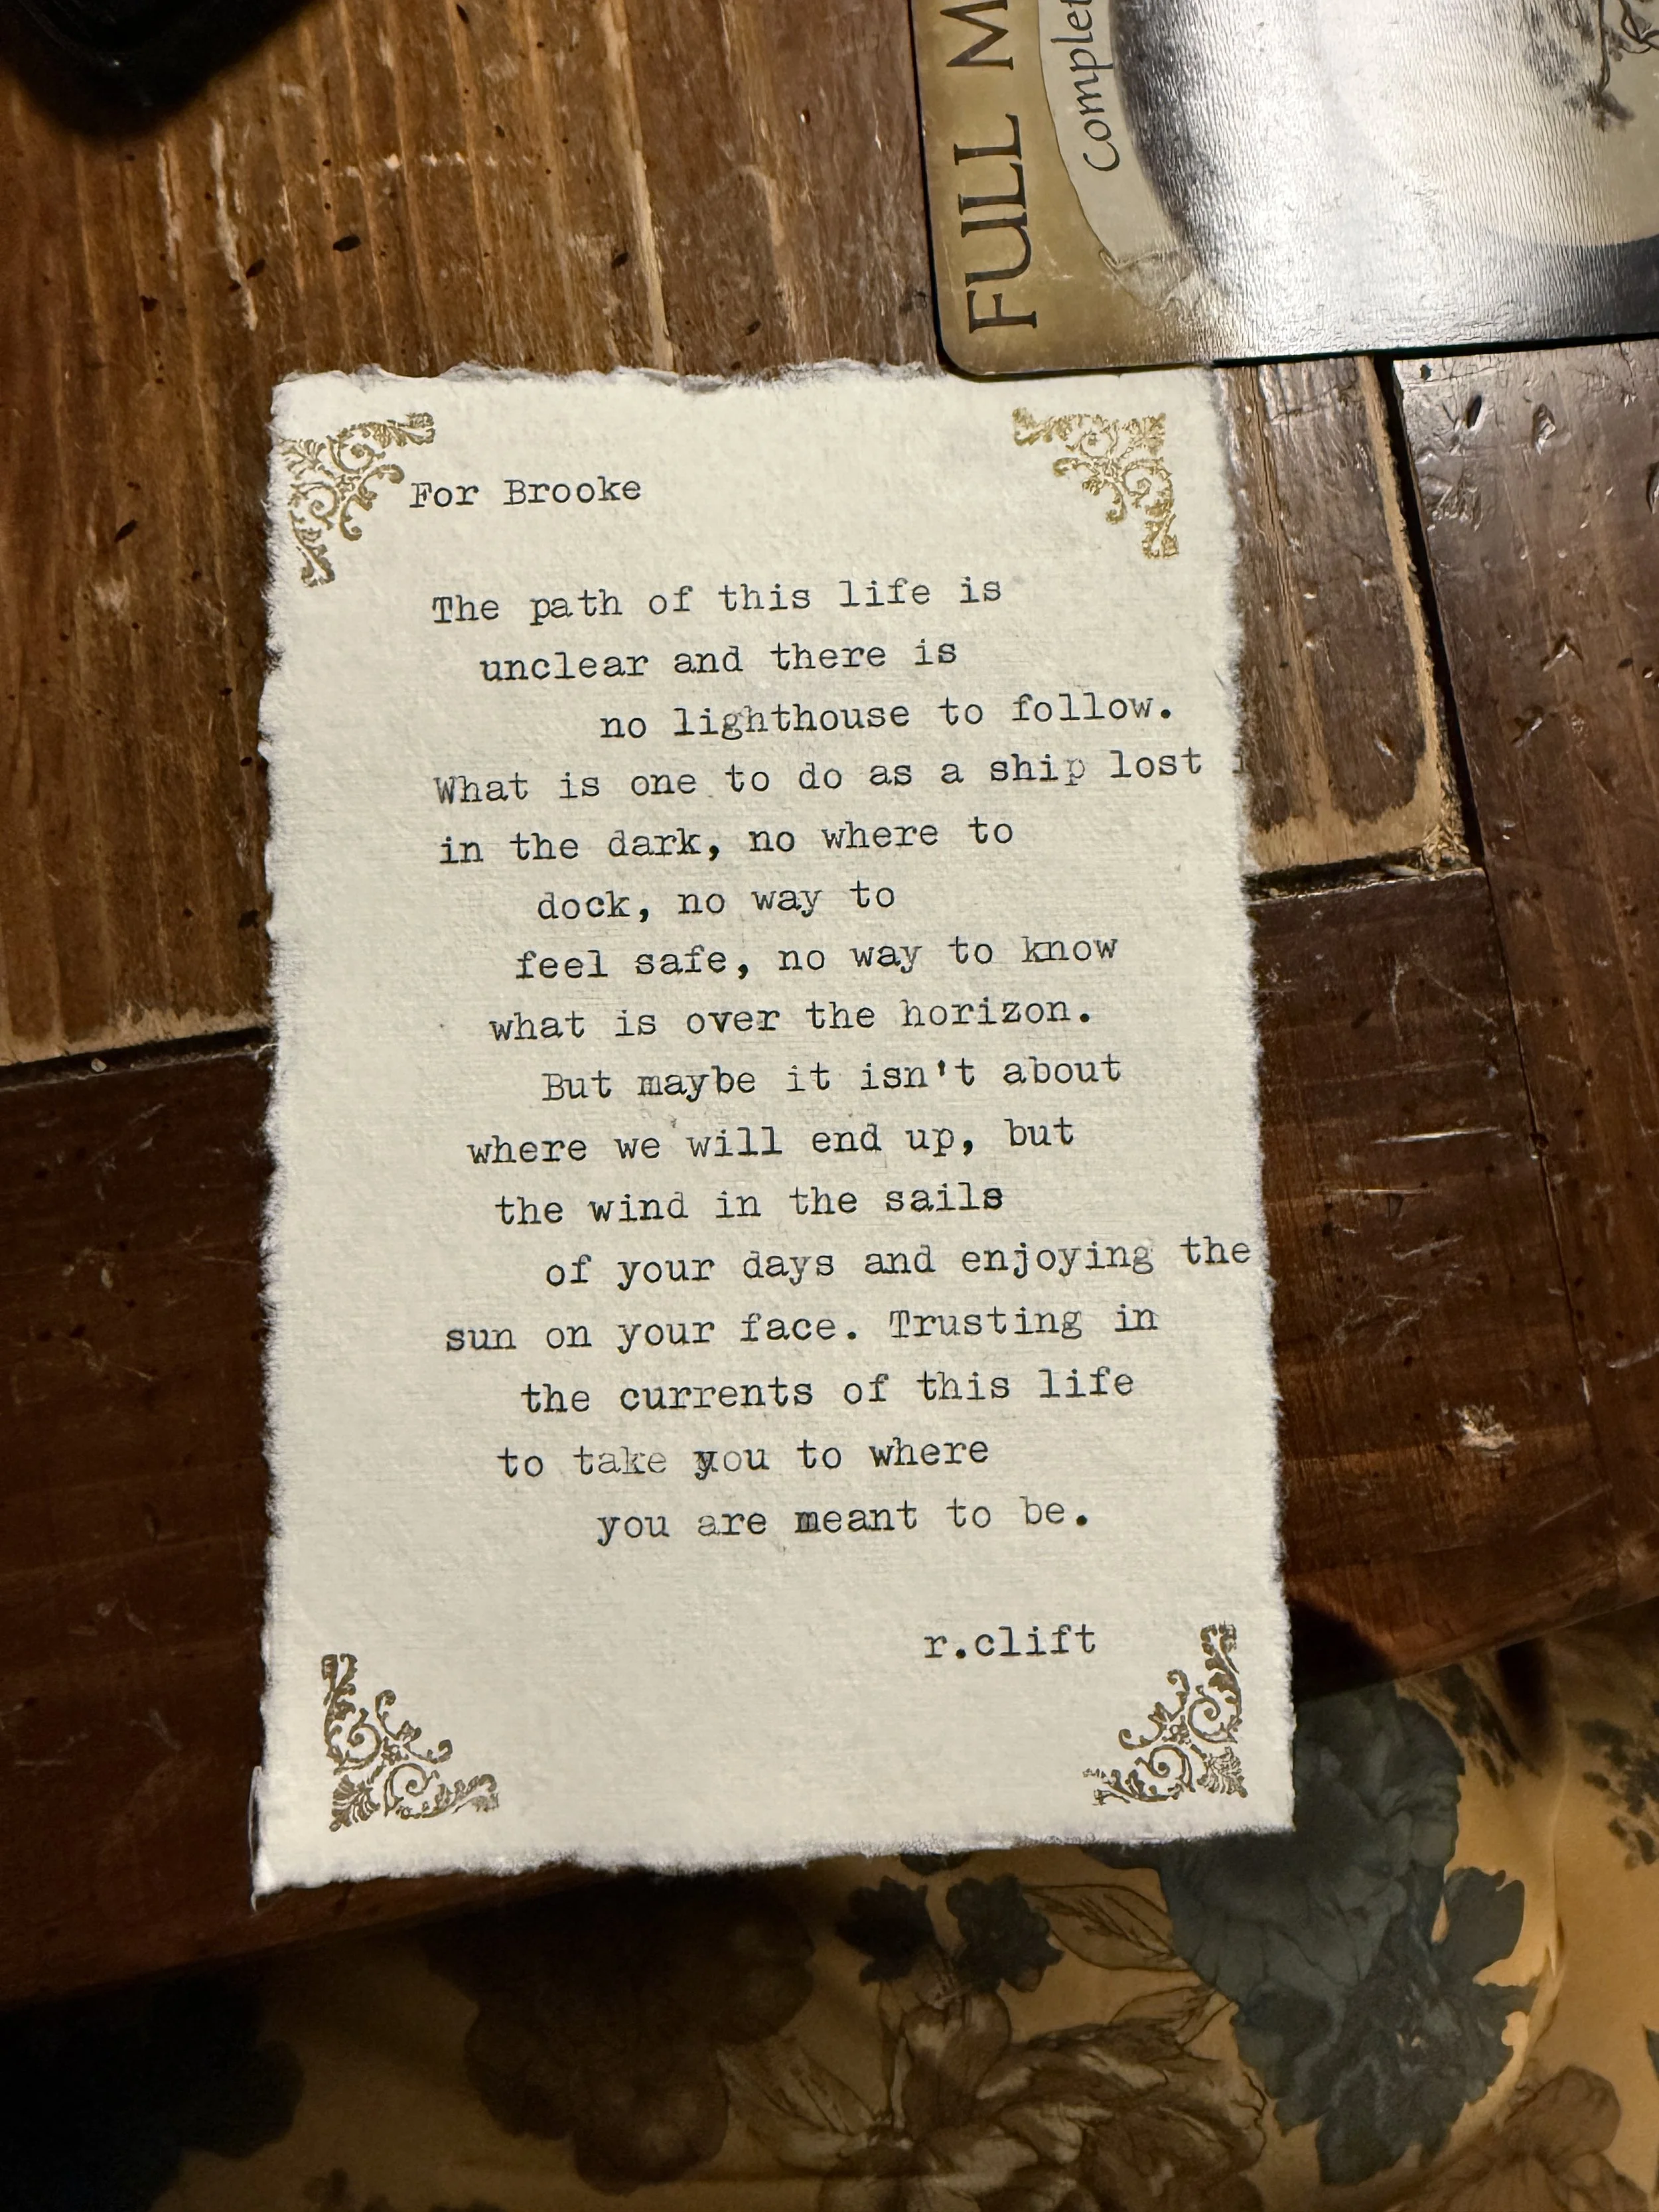 FULL M
Complet
For Brooke
The path of this life is
unclear and there is
no lighthouse to follow.
What is one to do as a ship lost i
in the dark, no where to
dock, no way to
feel safe, no way to know
what is over the horizon.
But maybe it isn't about
where we will end up, but
the wind in the sails
of your days and enjoying the
sun on your face. Trusting in
the currents of this life
to take you to where
you are meant to be.
r.clift